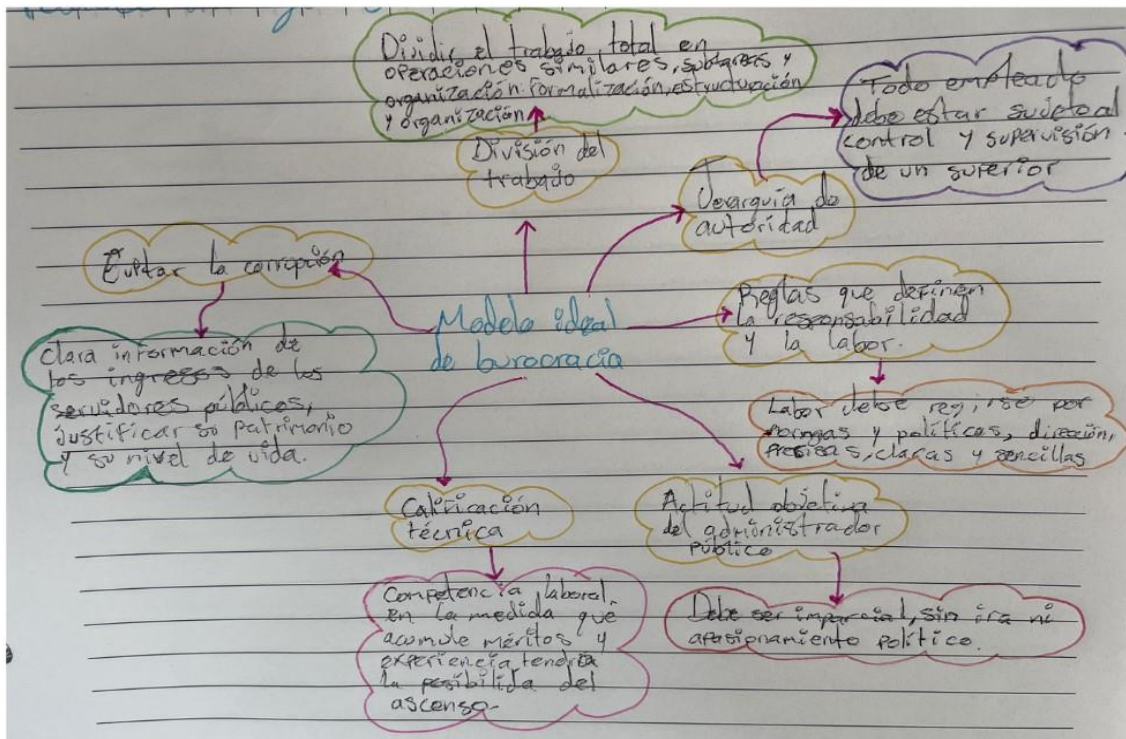 Dividir el trabajo total en
operaciones similares, subtareas y
organización formalización, estructuración
y organización
División del
trabajo
Todo empleado
debe estar sujeto al
control y supervisión
de un superior
Jerarquía de
autoridad
Evitar la corrupción
Modelo ideal
de burocracia
Reglas que definen
la responsabilidad
y la labor.
Clara información de
los ingresos de los
servidores públicos,
Justificar su patrimonio
y su nivel de vida.
Labor debe regirse por
normas y políticas, dirección,
precisas, claras y sencillas
Calificación
técnica
Actitud objetiva
del administrador
público
Competencia laboral,
en la medida que
acumule méritos y
experiencia, tendría
la posibilida del
ascenso-
Debe ser imparcial, sin ira ni
apasionamiento político.